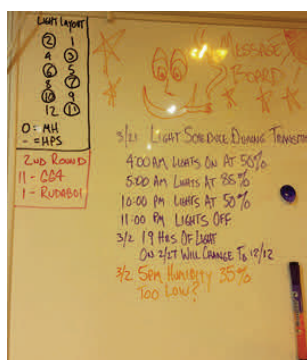 LIGHT LAYOUT
2 1
4 3
6 5
8 7
10 9
12 11
O = MH
- = HPS
2ND ROUND
11 - GG4
1 - RUDABOI
MESSAGE
BOARD
3/21 LIGHT SCHEDULE DURING TRANSITI
4:00 AM LIGHTS ON AT 50%
5:00 AM LIGHTS AT 85%
10:00 PM LIGHTS AT 50%
11:00 PM LIGHTS OFF
3/2 19 HRS OF LIGHT
ON 2/27 WILL CHANGE TO 12/12
3/2 5PM HUMIDITY 35%
TOO LOW?